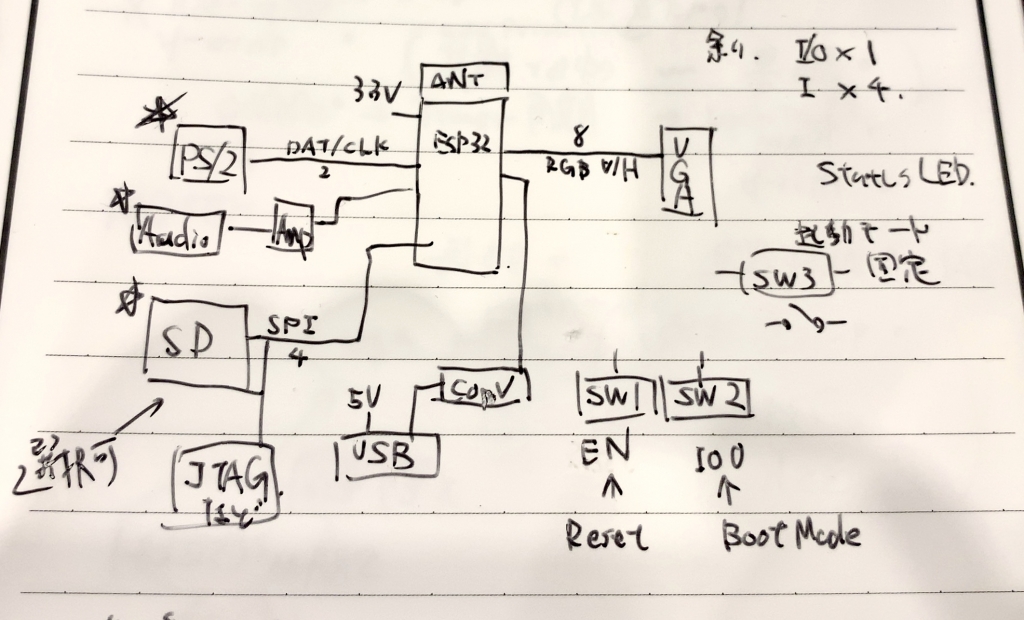 余り. I/O × 1
I × 4.
ANT
3.3V
ESP32
PS/2
DAT/CLK
2
8
RGB V/H
VGA
Status LED.
Audio
Amp
起動モード
固定
SW3
SD
SPI
4
5V
USB
Conv
SW1
SW2
EN
IO0
Reset
Boot Mode
JTAG